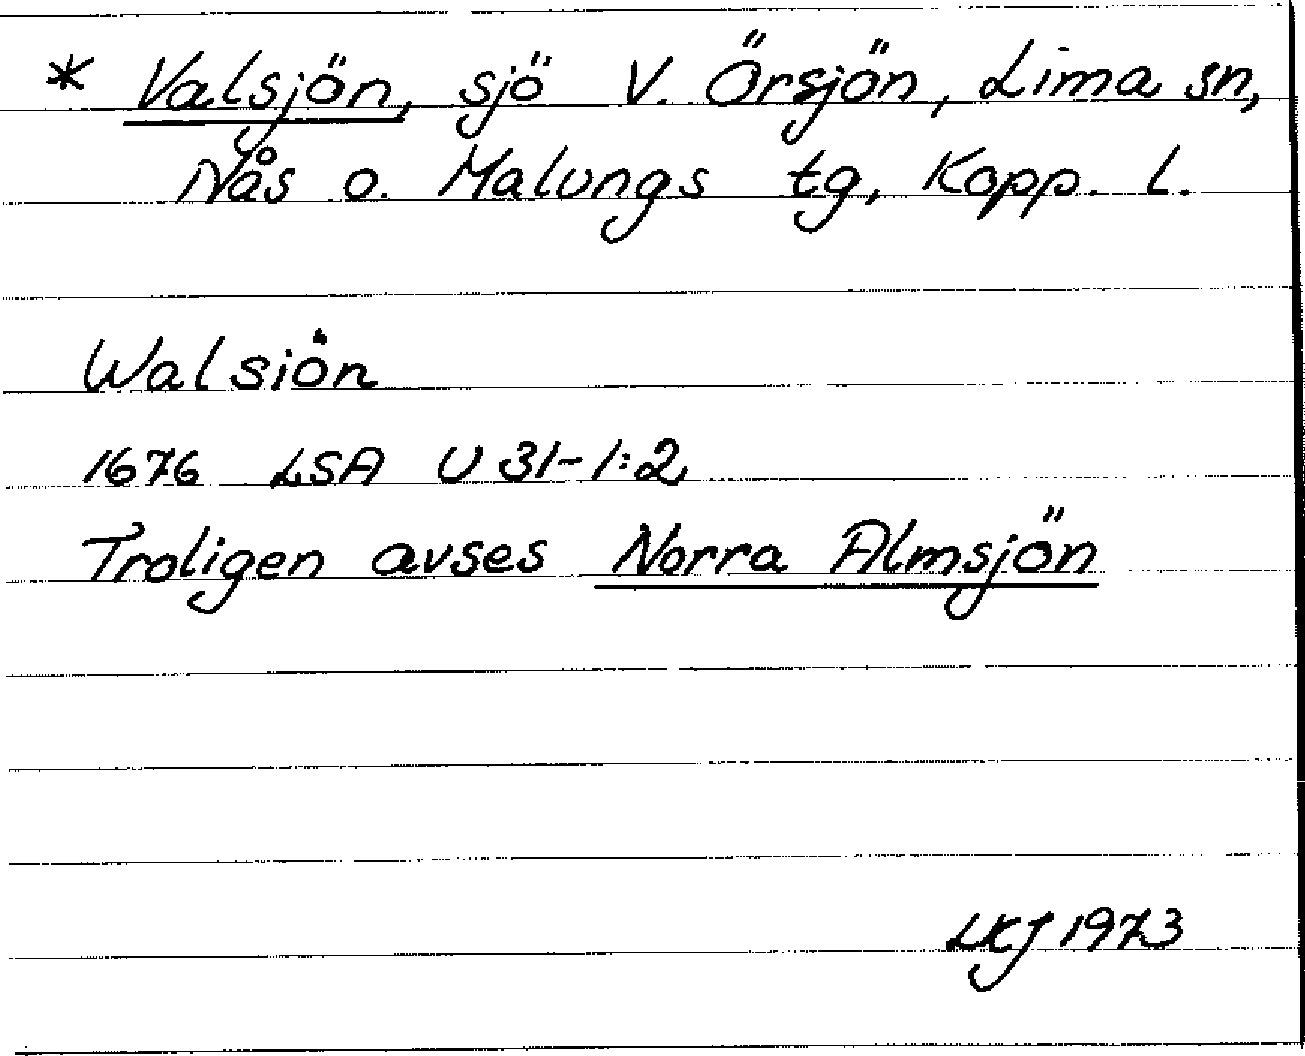 * Valsjön, sjö V. Örsjön, Lima sn,
Nås o. Malungs tg, Kopp. L.
Walsiön
1676 LSA U 31-1:2
Troligen avses Norra Almsjön
LKJ 1973